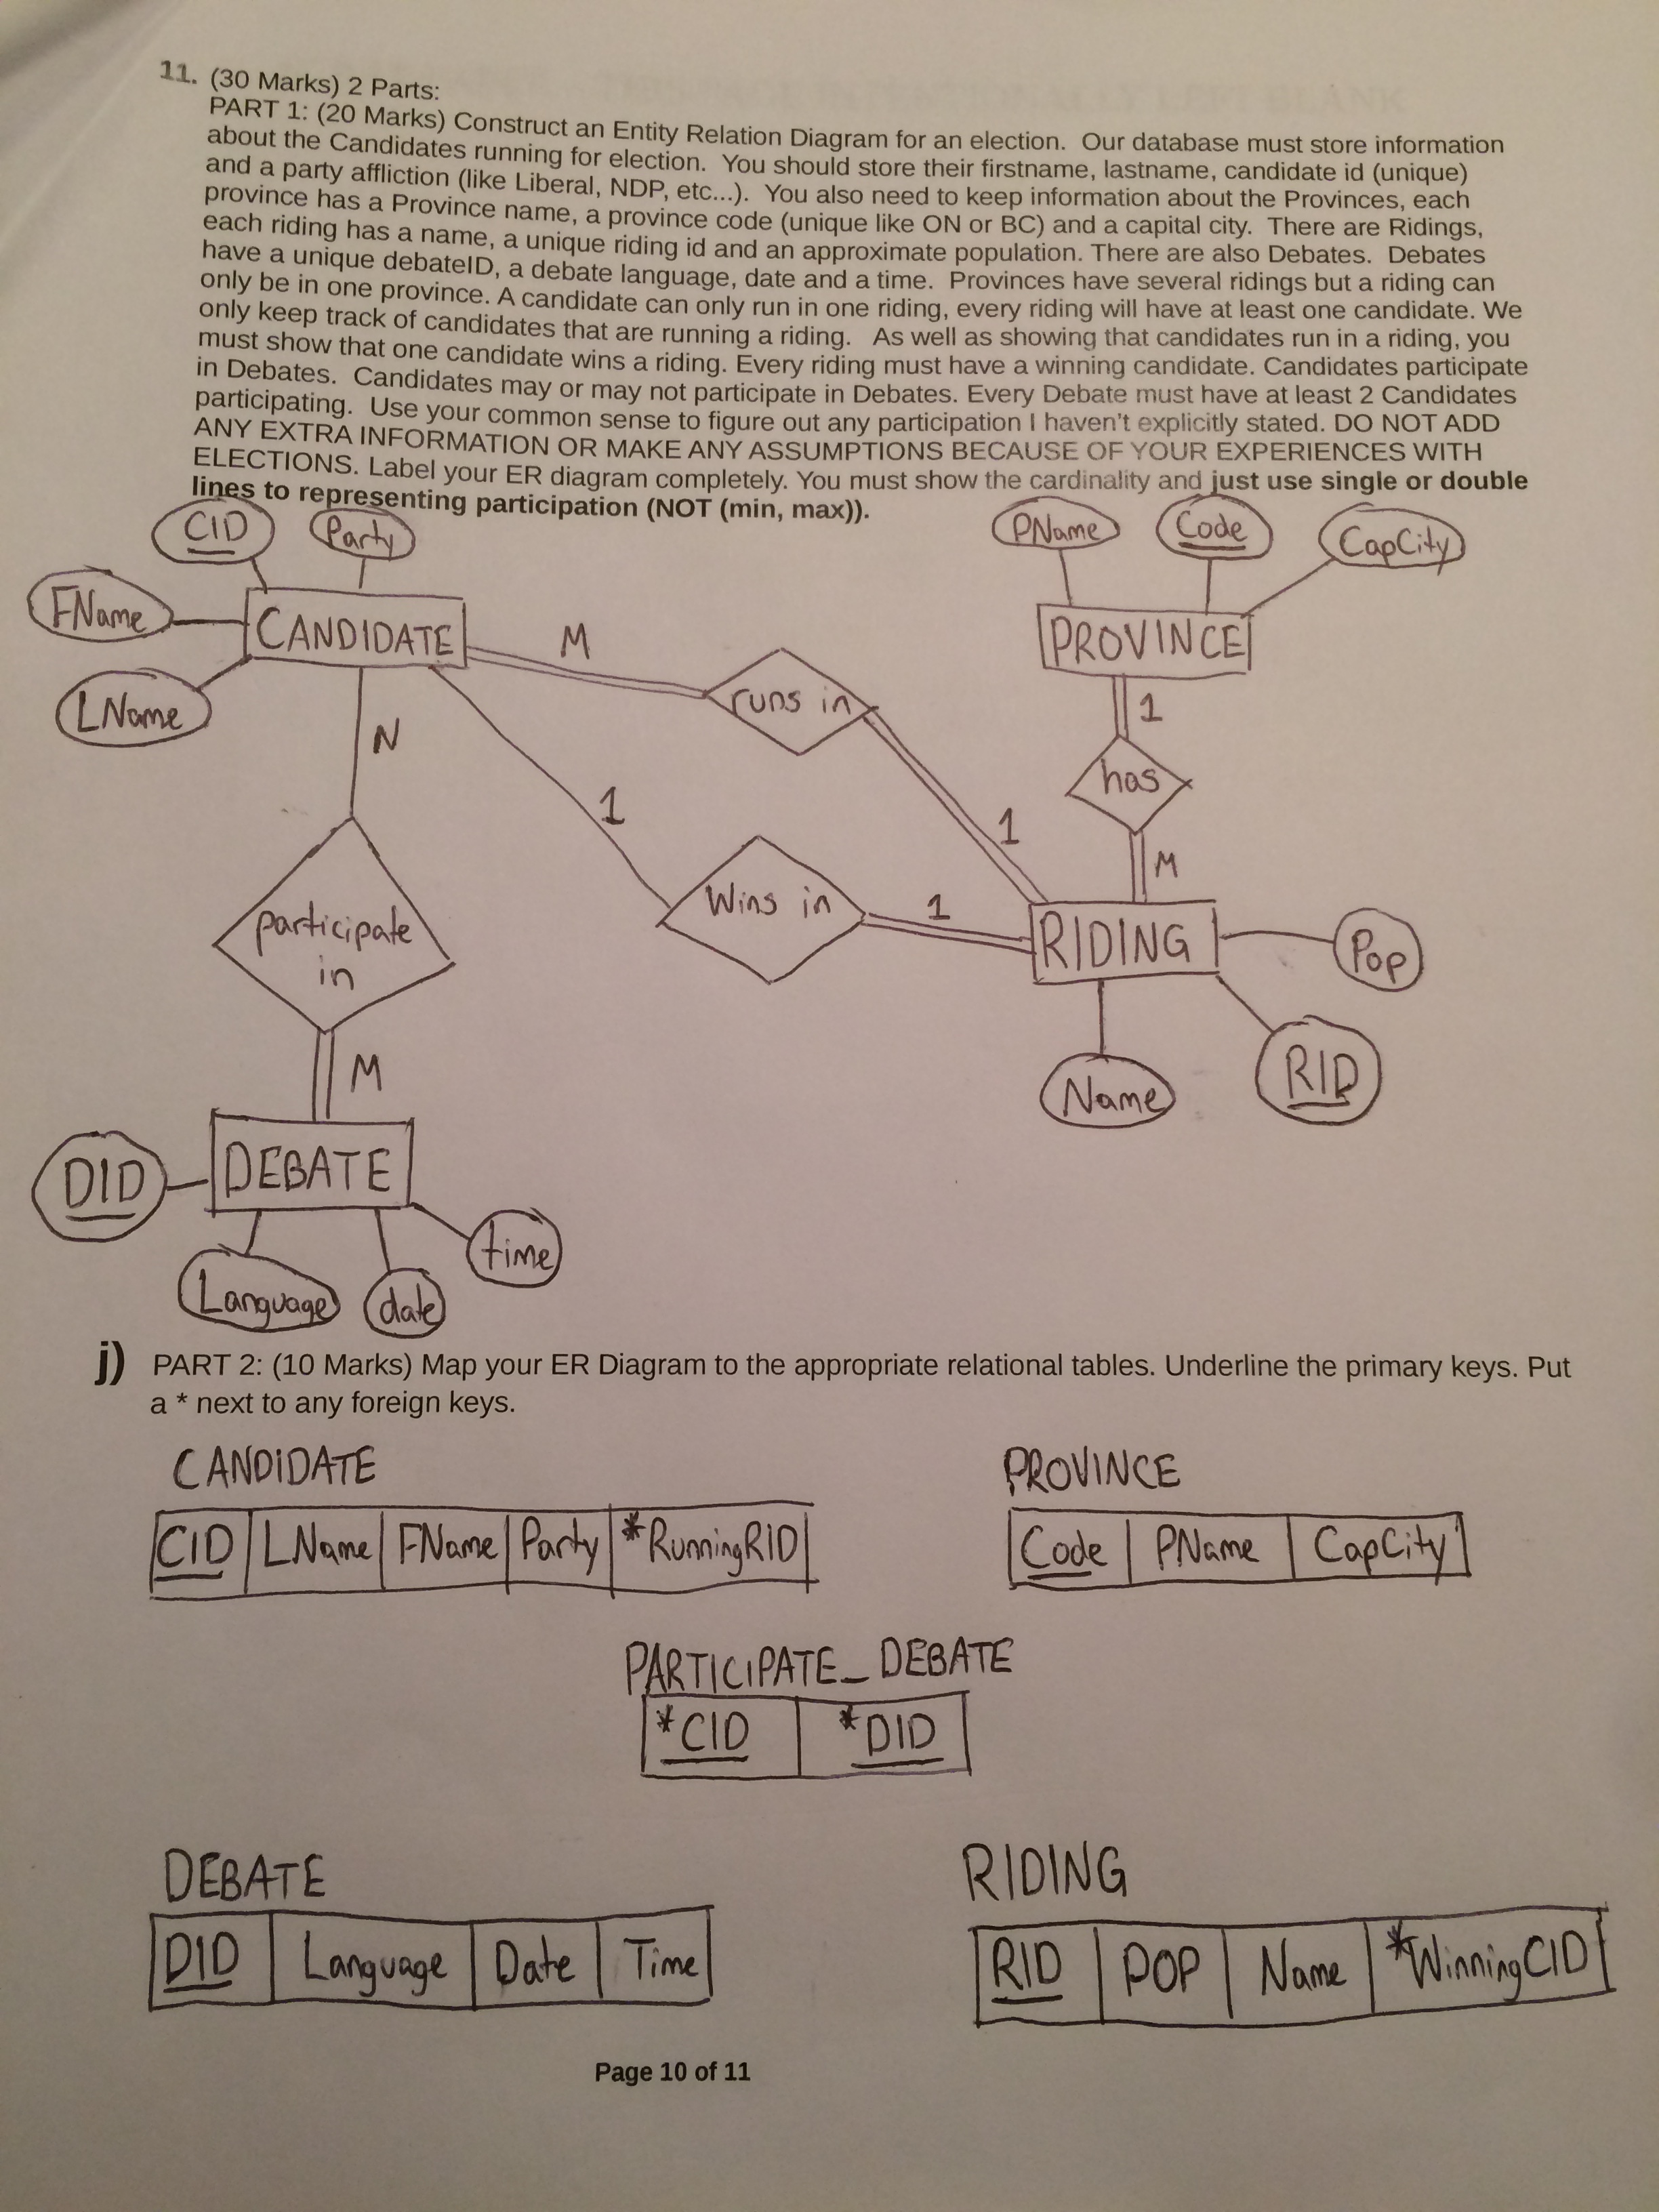 11. (30 Marks) 2 Parts:
PART 1: (20 Marks) Construct an Entity Relation Diagram for an election. Our database must store information
about the Candidates running for election. You should store their firstname, lastname, candidate id (unique)
and a party affliction (like Liberal, NDP, etc...). You also need to keep information about the Provinces, each
province has a Province name, a province code (unique like ON or BC) and a capital city. There are Ridings,
each riding has a name, a unique riding id and an approximate population. There are also Debates. Debates
have a unique debateID, a debate language, date and a time. Provinces have several ridings but a riding can
only be in one province. A candidate can only run in one riding, every riding will have at least one candidate. We
only keep track of candidates that are running a riding. As well as showing that candidates run in a riding, you
must show that one candidate wins a riding. Every riding must have a winning candidate. Candidates participate
in Debates. Candidates may or may not participate in Debates. Every Debate must have at least 2 Candidates
participating. Use your common sense to figure out any participation I haven't explicitly stated. DO NOT ADD
ANY EXTRA INFORMATION OR MAKE ANY ASSUMPTIONS BECAUSE OF YOUR EXPERIENCES WITH
ELECTIONS. Label your ER diagram completely. You must show the cardinality and just use single or double
lines to representing participation (NOT (min, max)).
CID Party PName Code CapCity
FName CANDIDATE M PROVINCE
LName runs in 1
N has
1 1 M
participate
in
Wins in 1 RIDING Pop
M Name RID
DID DEBATE
time
Language date
j) PART 2: (10 Marks) Map your ER Diagram to the appropriate relational tables. Underline the primary keys. Put
a * next to any foreign keys.
CANDIDATE PROVINCE
CID LName FName Party *RunningRID Code PName CapCity
PARTICIPATE_DEBATE
*CID *DID
DEBATE RIDING
DID Language Date Time RID POP Name *WinningCID
Page 10 of 11